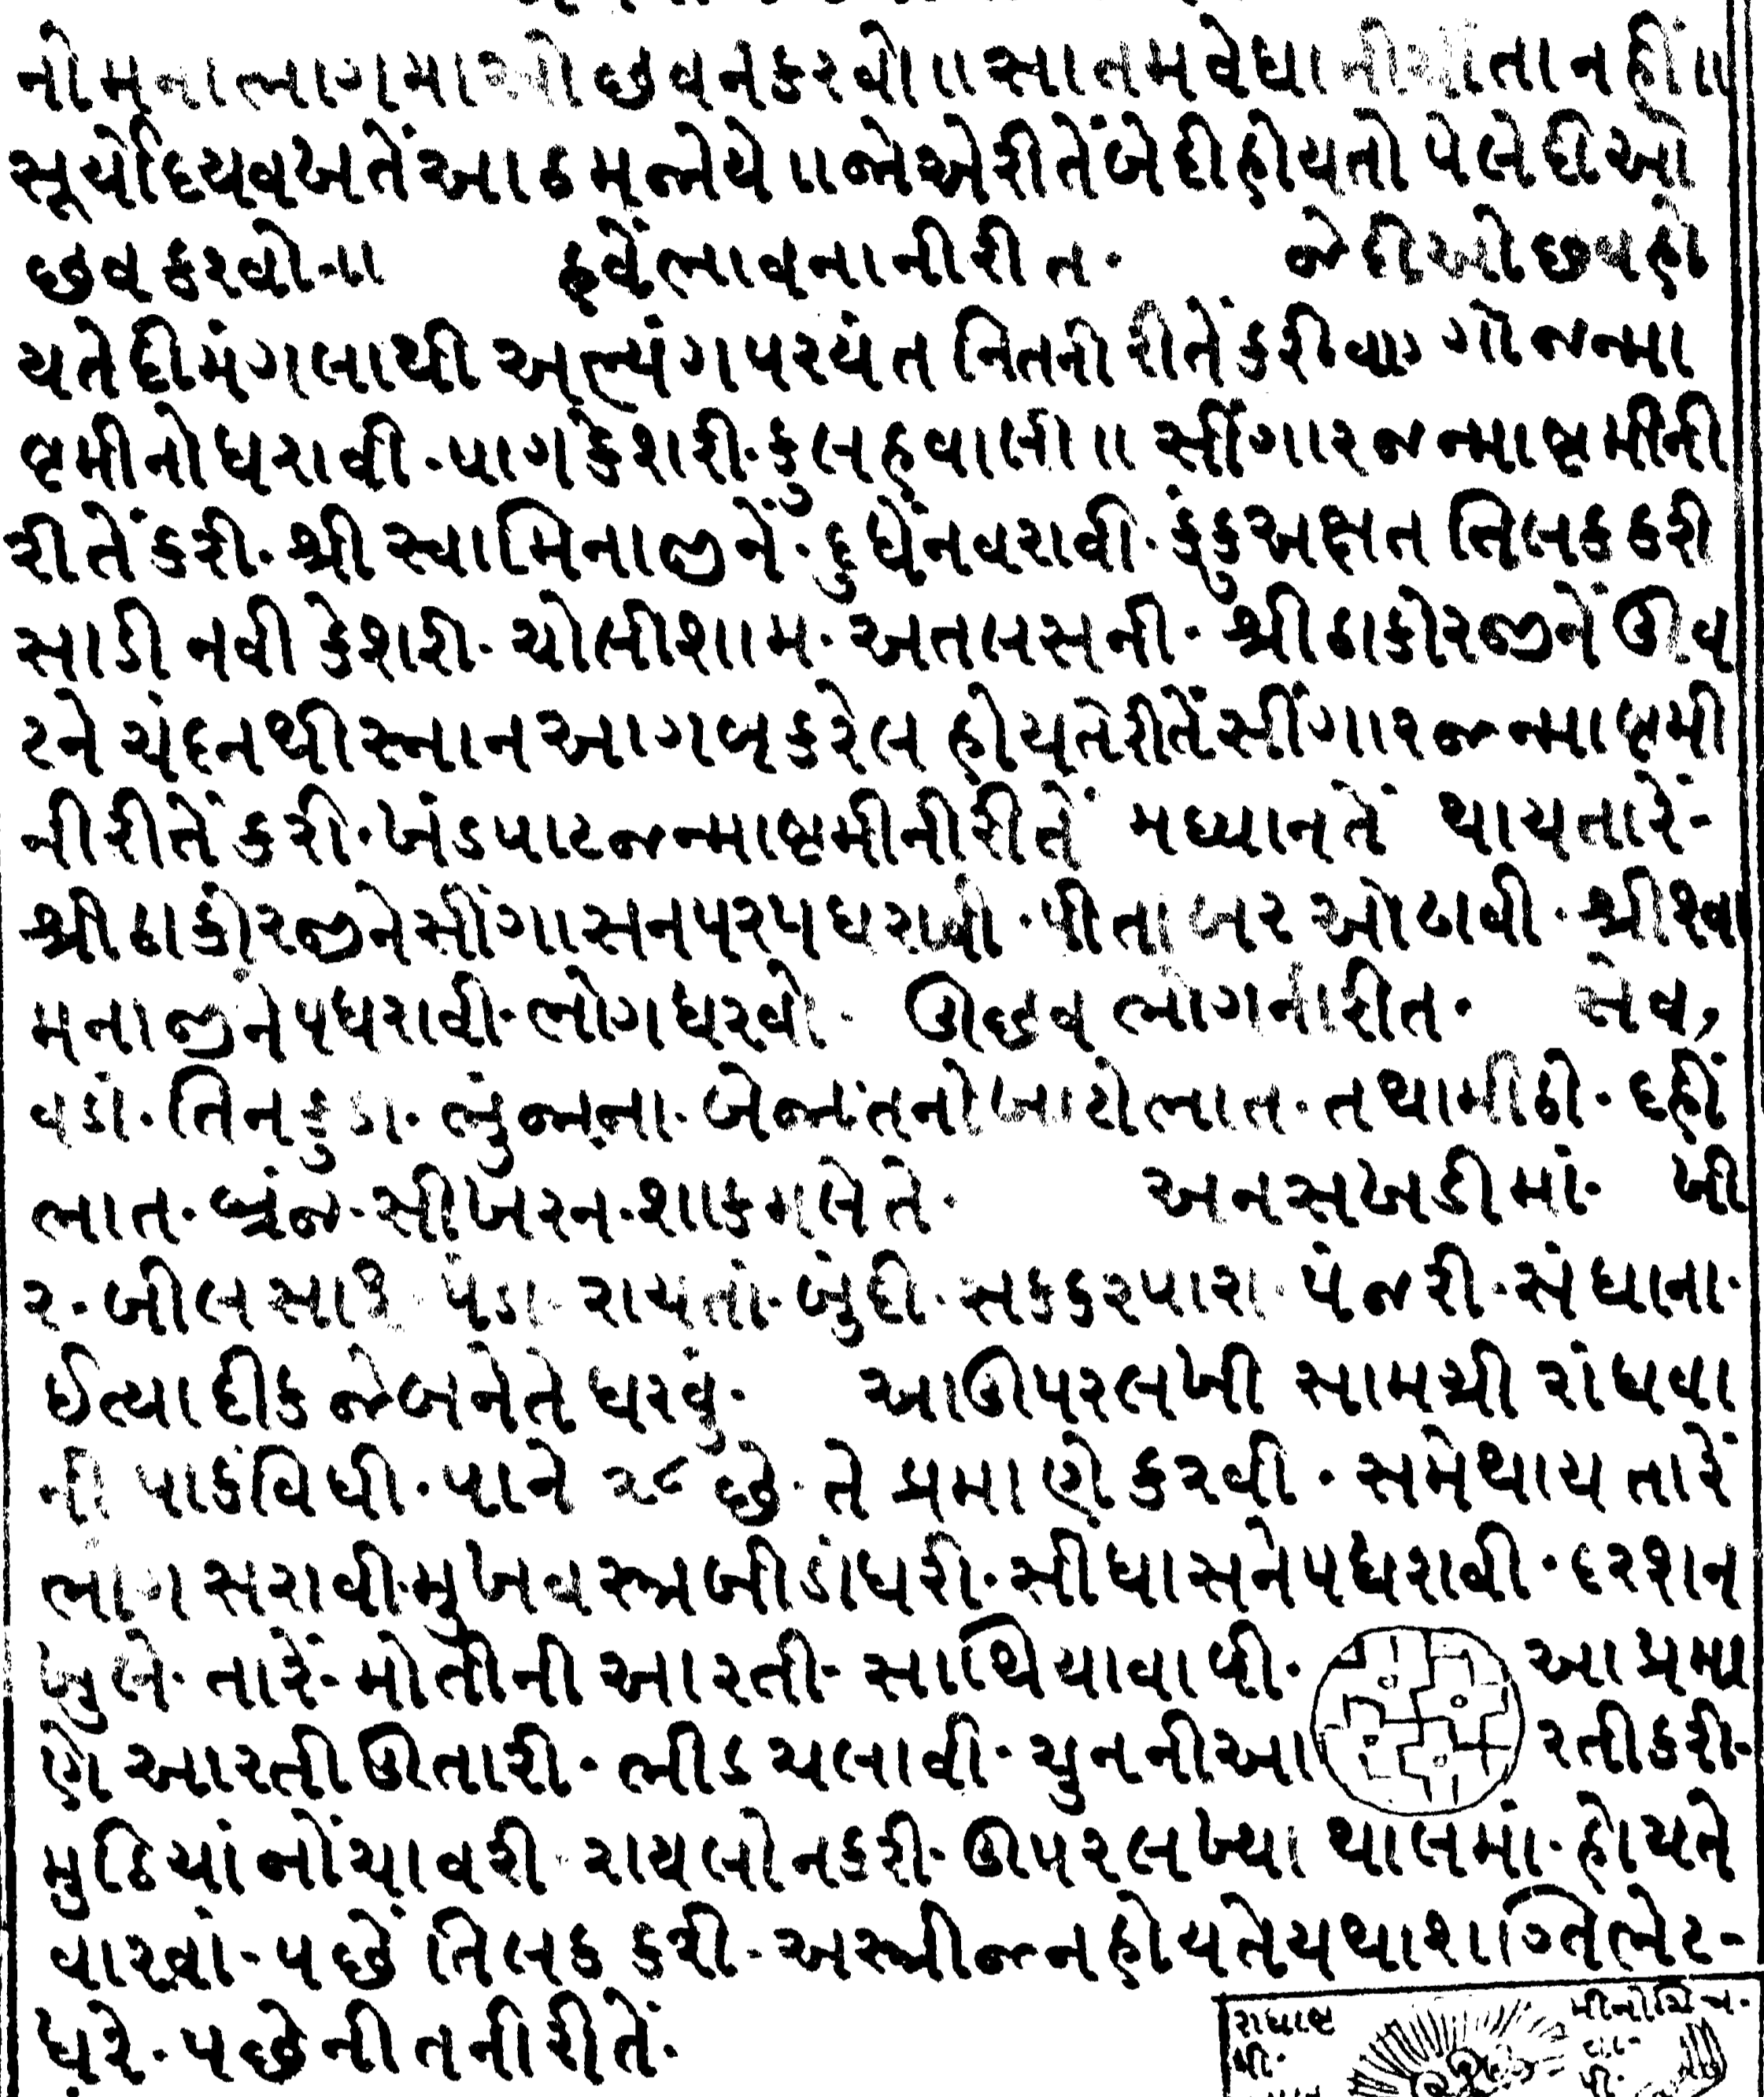 નોમના ભાગમા ઓછવ ન કરવો॥ સાતમ વેધાની ચીંતા નહીં॥
સૂર્યોદય વખતેં આઠમ જોયે॥ જો એ રીતેં બે દી હોય તો પેલે દી ઓ
છવ કરવો॥ હવેં ભાવના ની રીત· જે દી ઓછવ હો
ય તે દી મંગલાથી અભ્યંગ પરયંત નિતની રીતેં કરી વાગો જન્મા
ષ્ટમીનો ધરાવી· પાગ કેશરી· કુલહ વાલી॥ સીંગાર જન્માષ્ટમીની
રીતેં કરી· શ્રી સ્વામિનાજીનેં· દુધેં નવરાવી· કુંકુ અક્ષત તિલક કરી
સાડી નવી કેશરી· ચોલી શામ· અતલસની· શ્રી ઠાકોરજીનેં ઊવ
ટને ચંદનથી સ્નાન આગલ કરેલ હોય તે રીતેં સીંગાર જન્માષ્ટમી
ની રીતેં કરી· ખંડપાટ જન્માષ્ટમીની રીતેં મધ્યાનતેં થાય તારેં-
શ્રી ઠાકોરજીને સીંગાસન પર પધરાવી· પીતાંબર ઓઢાવી· શ્રી સ્વા
મનાજીને પધરાવી· ભોગ ધરવો· ઊછવ ભોગની રીત· સેવ,
વડાં· તિનકુડા· ભુંજેના· બે જાતનો ખાટો ભાત· તથા મીઠો· દહીં
ભાત· બ્રંજ· સીખરન· શાક મલે તે· અનસખડીમાં· ખી
ર· બીલસારુ પેંડા રાયતાં· બુંદી· સકકરપારા· પંજરી· સંધાના·
ઈત્યાદીક જે બને તે ધરવું· આ ઊપર લખી સામગ્રી રાંધવા
ની પાકવિધી· પાને ૨૮ છે· તે પ્રમાણે કરવી· સમે થાય તારેં
ભોગ સરાવી· મુખવસ્ત્ર બીડાં ધરી· સીંઘાસને પધરાવી· દરશન
ખુલે· તારેં· મોતીની આરતી· સાથિયા વાલી· આ પ્રમા
ણે આરતી ઊતારી· ભીડ ચલાવી· ચુનની આરતી કરી·
મુઠિયાં નોંચાવરી· રાયલોન કરી· ઊપર લખ્યા થાલમાં· હોય તે
વારવાં· પછેં તિલક કરી· અસ્ત્રીજન હોય તે યથાશક્તિ ભેટ-
ધરે· પછે નીતની રીતેં·
રાધાષ્ટ
મી·
મીનોચિત્ર·